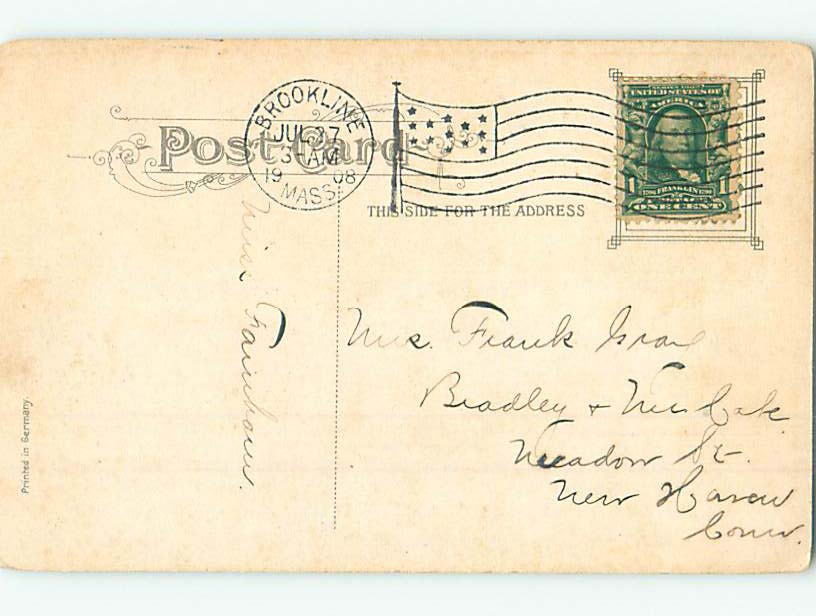 Post Card
BROOKLINE
JUL 27
3-AM
19 08
MASS.
THIS SIDE FOR THE ADDRESS
SERIES 1902
UNITED STATES OF
AMERICA
1 FRANKLIN 1
ONE CENT
Miss
Mrs. Frank
Bradley +
Meadow St.
New Haven
Conn.
Printed in Germany.